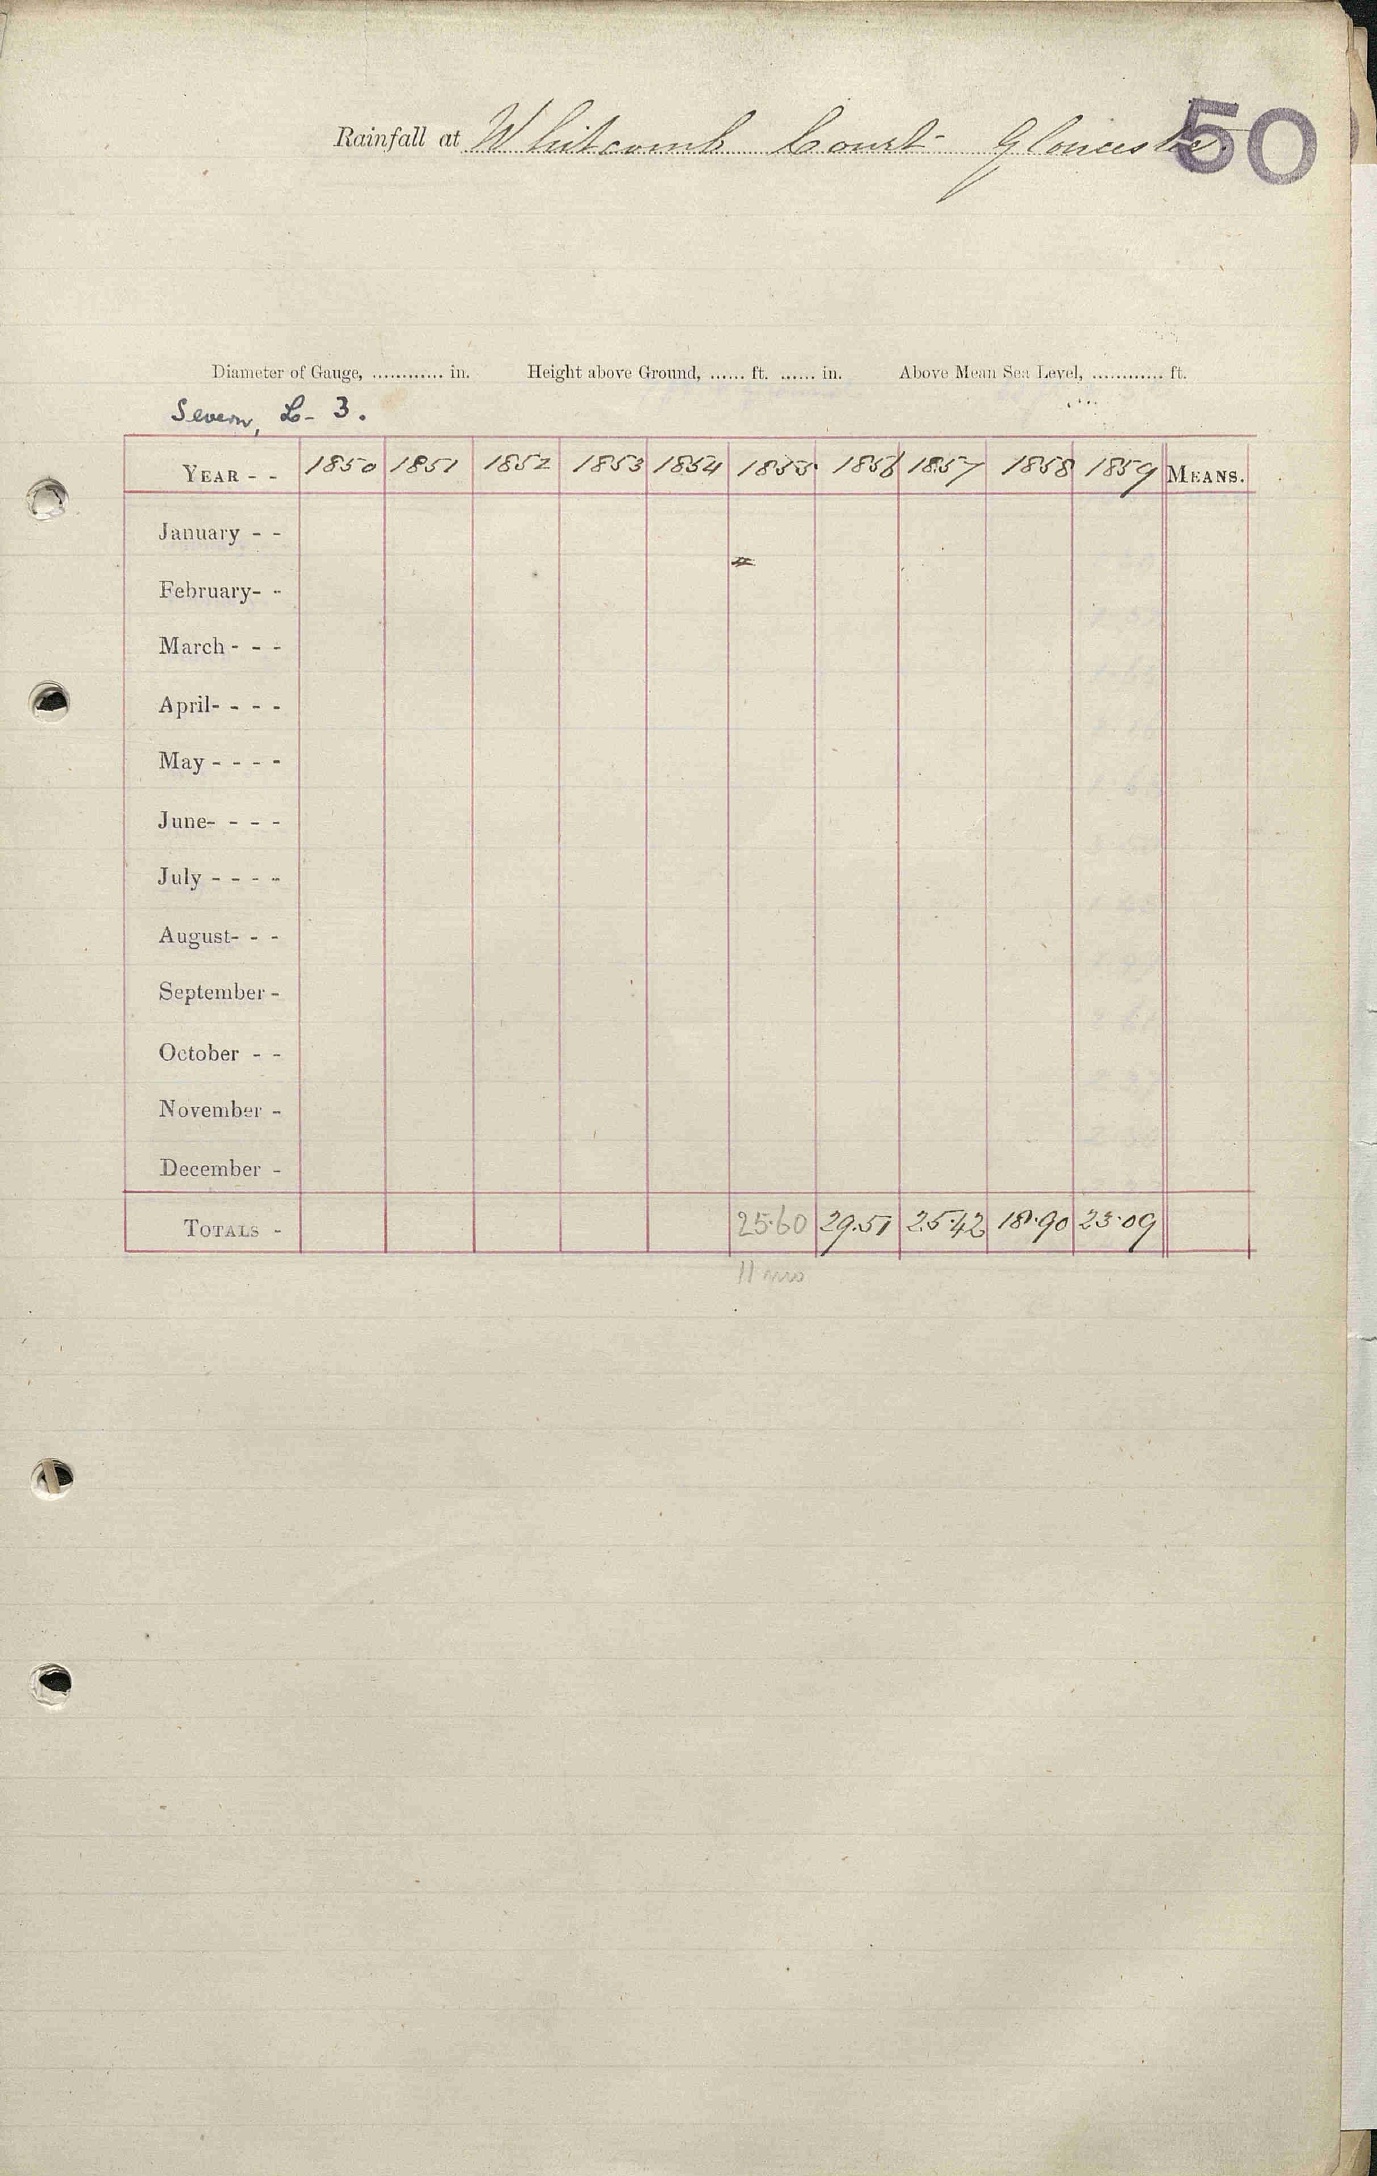 50
Rainfall at Whitcomb Court Gloucester.
Diameter of Gauge, ............ in. Height above Ground, ...... ft. ...... in. Above Mean Sea Level, ............ ft.
Severn, L- 3.
YEAR - - 1850 1851 1852 1853 1854 1855 1856 1857 1858 1859 MEANS.
January - -
February- -
March - - -
April- - - -
May - - - -
June- - - -
July - - - -
August- - -
September -
October - -
November -
December -
TOTALS - 25.60 29.51 25.42 18.90 23.09
11 mos